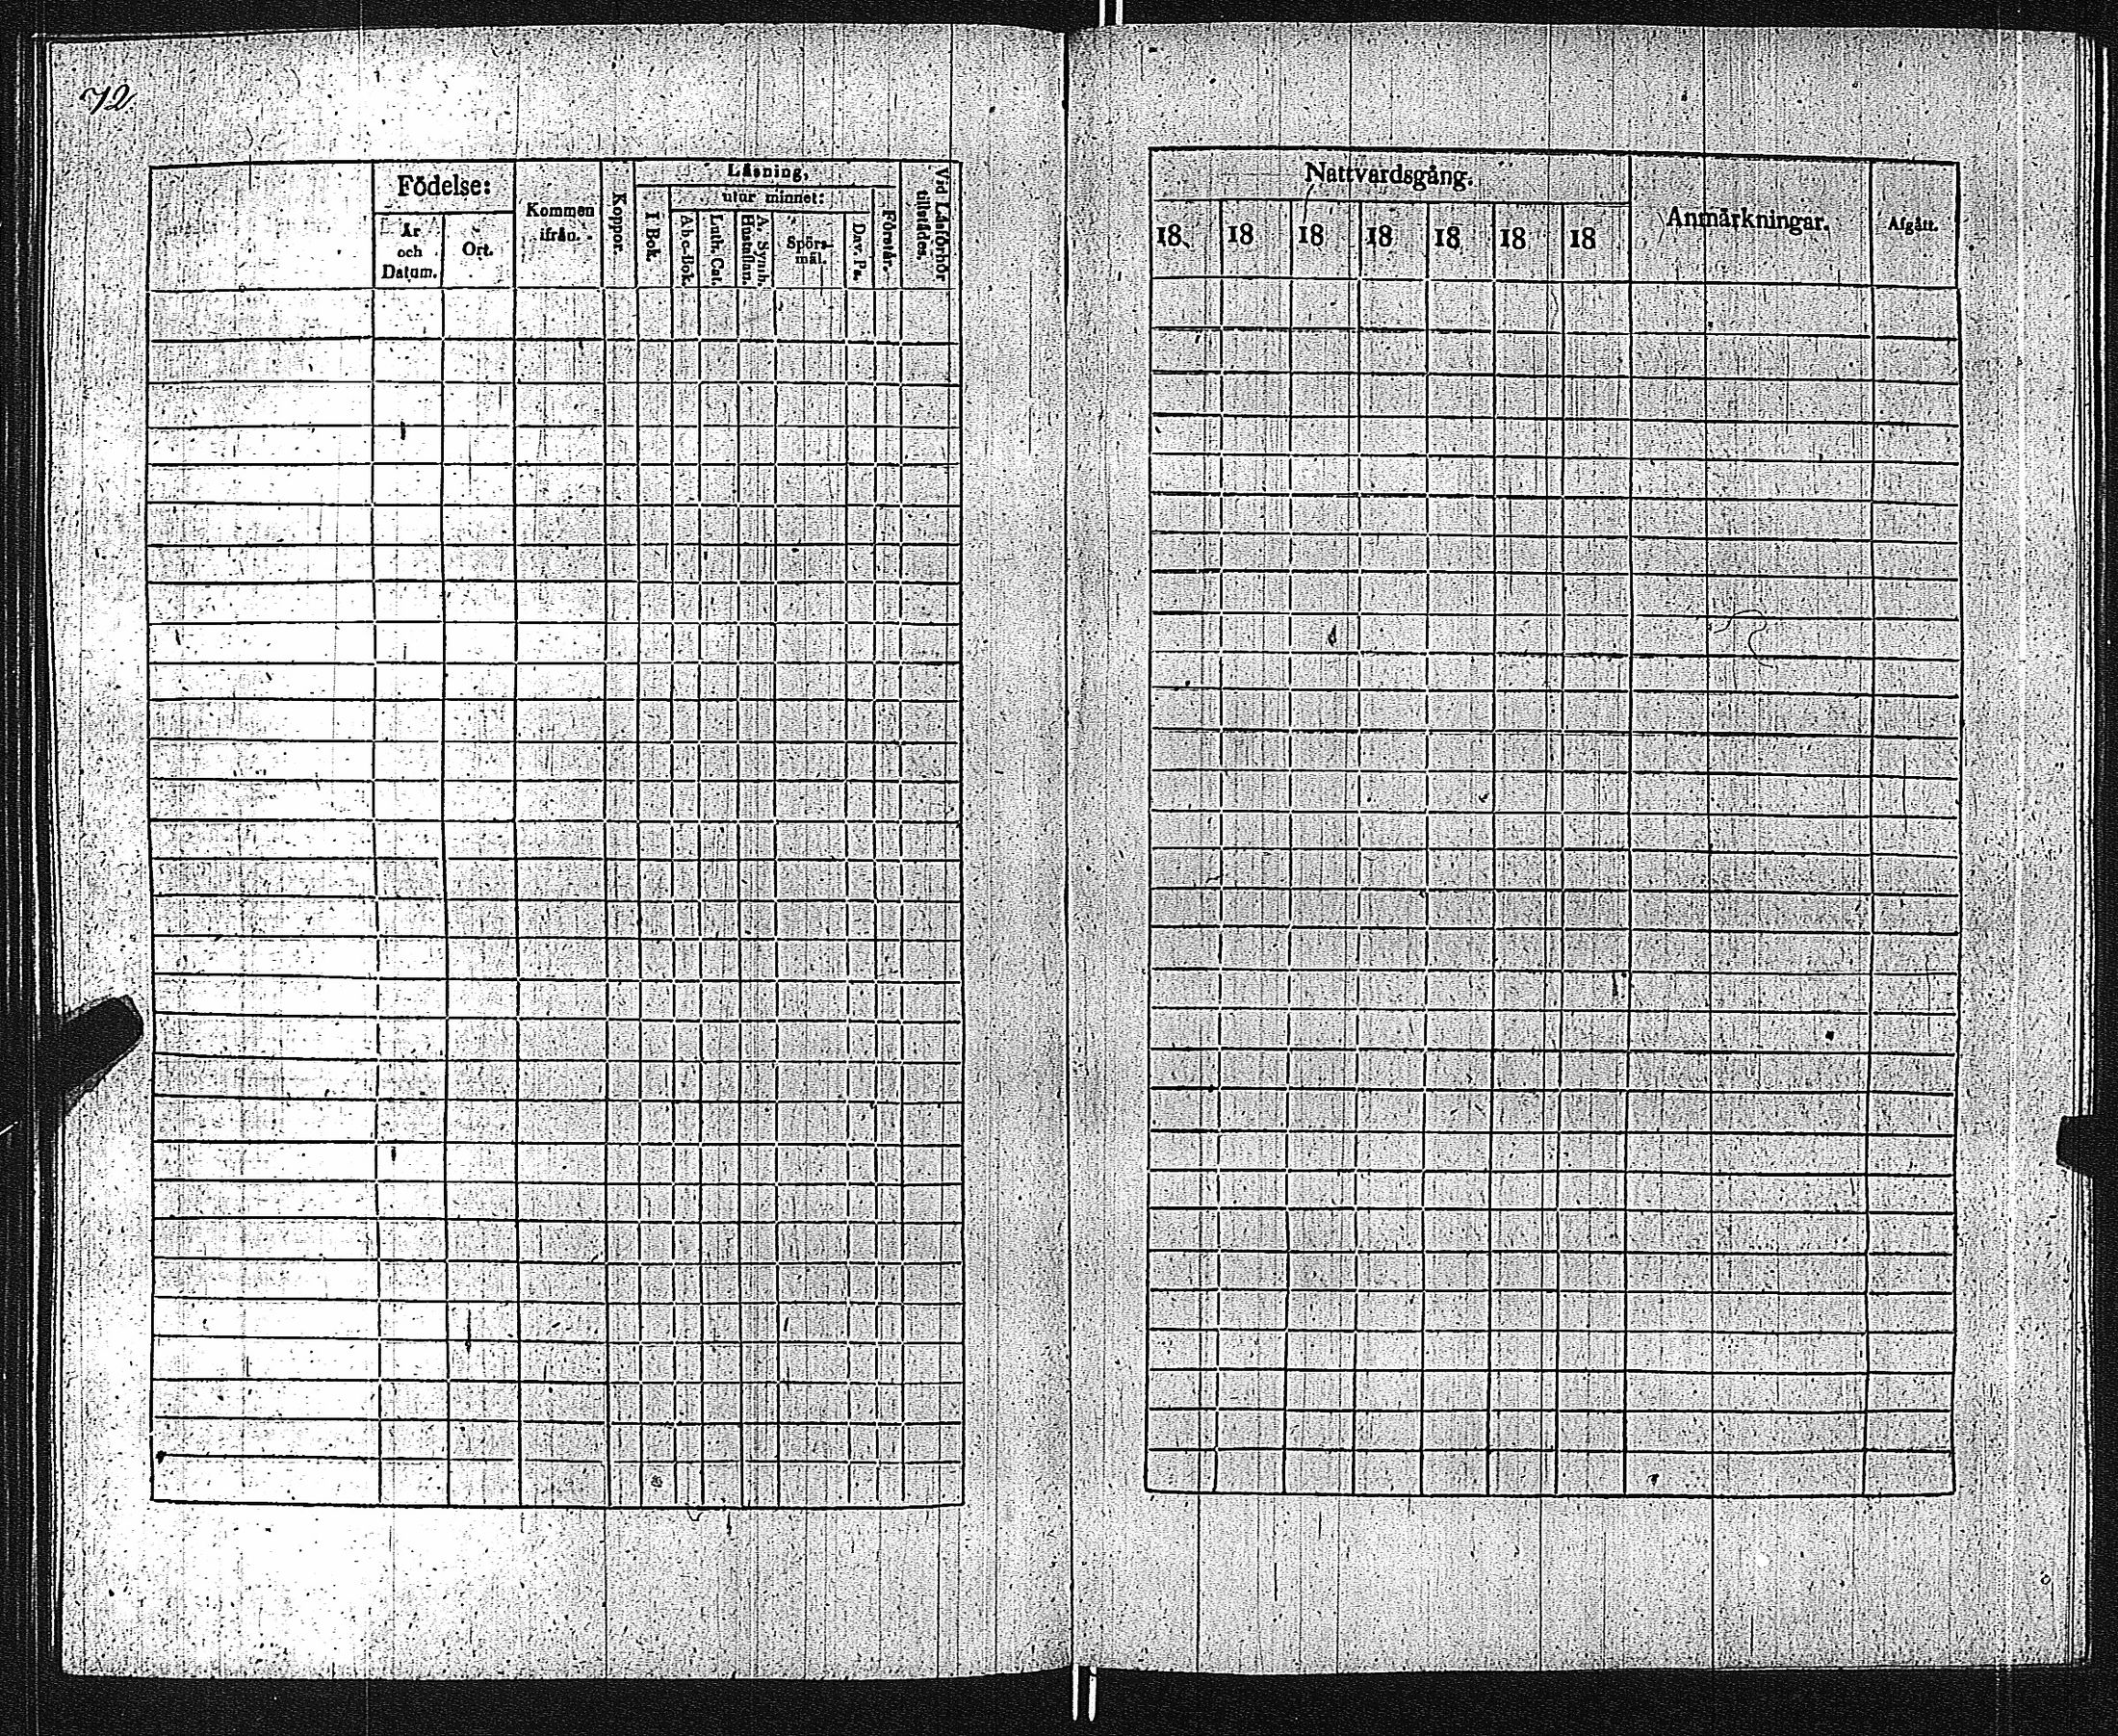 72
Födelse:
År och Datum.
Ort.
Kommen ifrån.
Koppor.
Läsning,
I Bok.
utur minnet:
Abc-Bok.
Luth. Cat.
A. Symb. Hustaflan.
Spörs-mål.
Dav. Ps.
Förstår.
Vid Läsförhör tillstädes.
Nattvardsgång.
18 18 18 18 18 18 18
Anmärkningar.
Afgått.